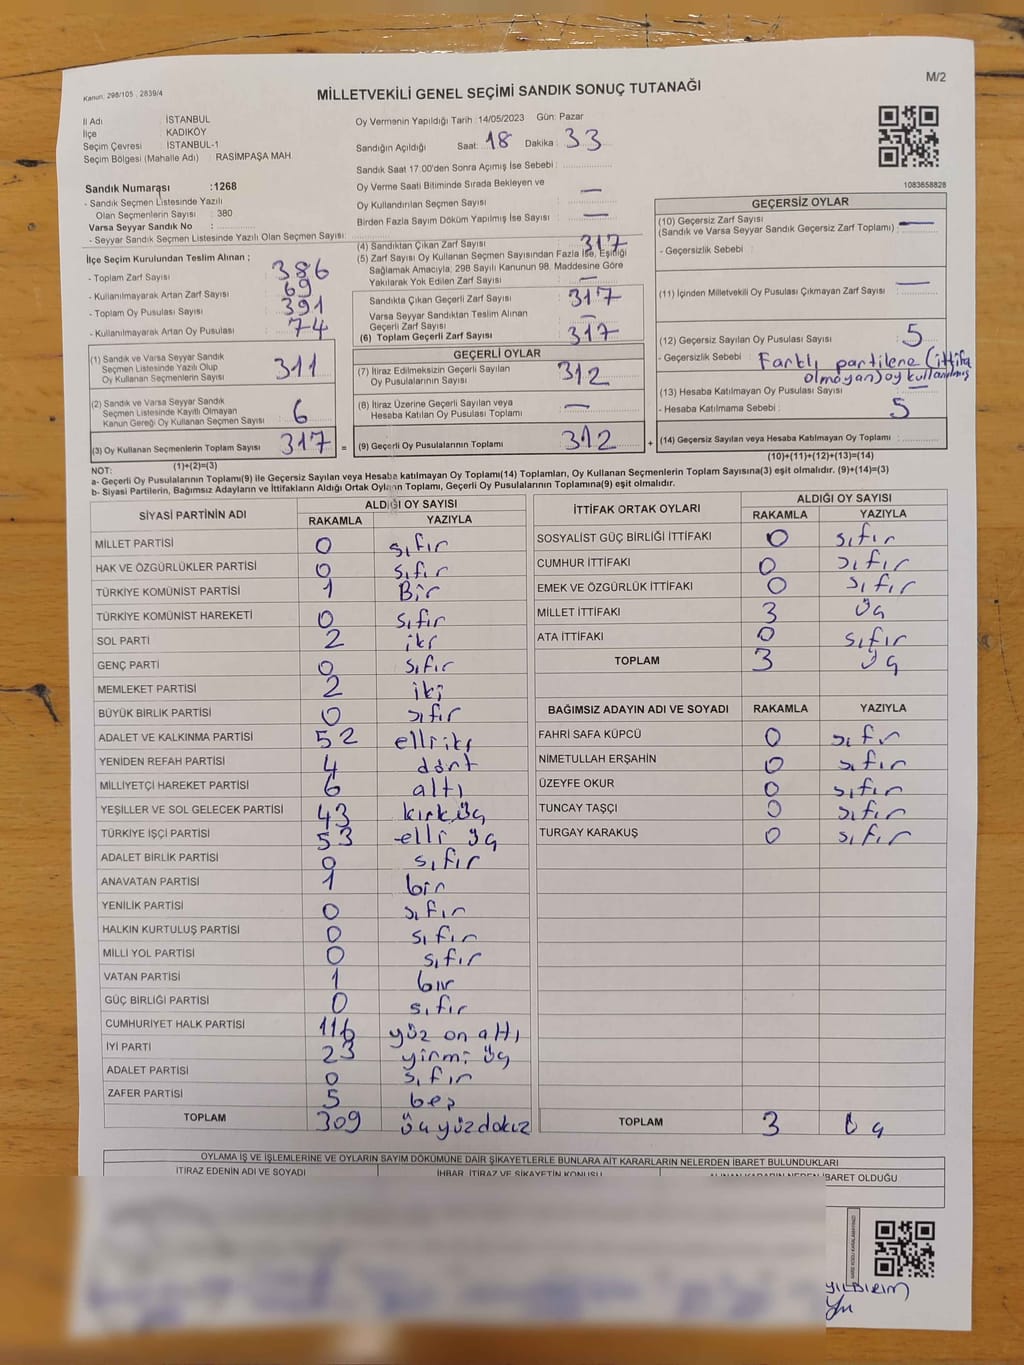 Kanun. 298/105 , 2839/4
M/2
MİLLETVEKİLİ GENEL SEÇİMİ SANDIK SONUÇ TUTANAĞI
İl Adı : İSTANBUL
İlçe : KADIKÖY
Seçim Çevresi : İSTANBUL-1
Seçim Bölgesi (Mahalle Adı) : RASİMPAŞA MAH
Sandık Numarası :1268
- Sandık Seçmen Listesinde Yazılı
Olan Seçmenlerin Sayısı : 380
Varsa Seyyar Sandık No :
- Seyyar Sandık Seçmen Listesinde Yazılı Olan Seçmen Sayısı:
İlçe Seçim Kurulundan Teslim Alınan ;
- Toplam Zarf Sayısı : 386
- Kullanılmayarak Artan Zarf Sayısı : 69
- Toplam Oy Pusulası Sayısı : 391
- Kullanılmayarak Artan Oy Pusulası : 74
(1) Sandık ve Varsa Seyyar Sandık
Seçmen Listesinde Yazılı Olup
Oy Kullanan Seçmenlerin Sayısı : 311
(2) Sandık ve Varsa Seyyar Sandık
Seçmen Listesinde Kayıtlı Olmayan
Kanun Gereği Oy Kullanan Seçmen Sayısı : 6
(3) Oy Kullanan Seçmenlerin Toplam Sayısı : 317 =
(1)+(2)=(3)
Oy Vermenin Yapıldığı Tarih :14/05/2023 Gün: Pazar
Sandığın Açıldığı Saat: 18 Dakika : 33
Sandık Saat 17:00'den Sonra Açımış İse Sebebi :
Oy Verme Saati Bitiminde Sırada Bekleyen ve
Oy Kullandırılan Seçmen Sayısı : —
Birden Fazla Sayım Döküm Yapılmış İse Sayısı : —
(4) Sandıktan Çıkan Zarf Sayısı : 317
(5) Zarf Sayısı Oy Kullanan Seçmen Sayısından Fazla İse, Eşitliği
Sağlamak Amacıyla, 298 Sayılı Kanunun 98. Maddesine Göre
Yakılarak Yok Edilen Zarf Sayısı : —
Sandıkta Çıkan Geçerli Zarf Sayısı : 317
Varsa Seyyar Sandıktan Teslim Alınan
Geçerli Zarf Sayısı : —
(6) Toplam Geçerli Zarf Sayısı : 317
GEÇERLİ OYLAR
(7) İtiraz Edilmeksizin Geçerli Sayılan
Oy Pusulalarının Sayısı : 312
(8) İtiraz Üzerine Geçerli Sayılan veya
Hesaba Katılan Oy Pusulası Toplamı : —
(9) Geçerli Oy Pusulalarının Toplamı : 312 +
1083658828
GEÇERSİZ OYLAR
(10) Geçersiz Zarf Sayısı
(Sandık ve Varsa Seyyar Sandık Geçersiz Zarf Toplamı) : —
- Geçersizlik Sebebi :
(11) İçinden Milletvekili Oy Pusulası Çıkmayan Zarf Sayısı : —
(12) Geçersiz Sayılan Oy Pusulası Sayısı : 5
- Geçersizlik Sebebi : Farklı partilene (ittifa
olmayan) oy kullanılmış
(13) Hesaba Katılmayan Oy Pusulası Sayısı : —
- Hesaba Katılmama Sebebi : 5
(14) Geçersiz Sayılan veya Hesaba Katılmayan Oy Toplamı :
(10)+(11)+(12)+(13)=(14)
NOT:
a- Geçerli Oy Pusulalarının Toplamı(9) ile Geçersiz Sayılan veya Hesaba katılmayan Oy Toplamı(14) Toplamları, Oy Kullanan Seçmenlerin Toplam Sayısına(3) eşit olmalıdır. (9)+(14)=(3)
b- Siyasi Partilerin, Bağımsız Adayların ve İttifakların Aldığı Ortak Oyların Toplamı, Geçerli Oy Pusulalarının Toplamına(9) eşit olmalıdır.
SİYASİ PARTİNİN ADI ALDIĞI OY SAYISI
RAKAMLA YAZIYLA
MİLLET PARTİSİ 0 sıfır
HAK VE ÖZGÜRLÜKLER PARTİSİ 0 sıfır
TÜRKİYE KOMÜNİST PARTİSİ 1 Bir
TÜRKİYE KOMÜNİST HAREKETİ 0 sıfır
SOL PARTİ 2 iki
GENÇ PARTİ 0 sıfır
MEMLEKET PARTİSİ 2 iki
BÜYÜK BİRLİK PARTİSİ 0 sıfır
ADALET VE KALKINMA PARTİSİ 52 elliiki
YENİDEN REFAH PARTİSİ 4 dört
MİLLİYETÇİ HAREKET PARTİSİ 6 altı
YEŞİLLER VE SOL GELECEK PARTİSİ 43 kırküç
TÜRKİYE İŞÇİ PARTİSİ 53 elli üç
ADALET BİRLİK PARTİSİ 0 sıfır
ANAVATAN PARTİSİ 1 bir
YENİLİK PARTİSİ 0 sıfır
HALKIN KURTULUŞ PARTİSİ 0 sıfır
MİLLİ YOL PARTİSİ 0 sıfır
VATAN PARTİSİ 1 bir
GÜÇ BİRLİĞİ PARTİSİ 0 sıfır
CUMHURİYET HALK PARTİSİ 116 yüz on altı
İYİ PARTİ 23 yirmi üç
ADALET PARTİSİ 0 sıfır
ZAFER PARTİSİ 5 beş
TOPLAM 309 üçyüzdokuz
İTTİFAK ORTAK OYLARI ALDIĞI OY SAYISI
RAKAMLA YAZIYLA
SOSYALİST GÜÇ BİRLİĞİ İTTİFAKI 0 sıfır
CUMHUR İTTİFAKI 0 sıfır
EMEK VE ÖZGÜRLÜK İTTİFAKI 0 sıfır
MİLLET İTTİFAKI 3 üç
ATA İTTİFAKI 0 sıfır
TOPLAM 3 üç
BAĞIMSIZ ADAYIN ADI VE SOYADI RAKAMLA YAZIYLA
FAHRİ SAFA KÜPCÜ 0 sıfır
NİMETULLAH ERŞAHİN 0 sıfır
ÜZEYFE OKUR 0 sıfır
TUNCAY TAŞÇI 0 sıfır
TURGAY KARAKUŞ 0 sıfır
TOPLAM 3 üç
OYLAMA İŞ VE İŞLEMLERİNE VE OYLARIN SAYIM DÖKÜMÜNE DAİR ŞİKAYETLERLE BUNLARA AİT KARARLARIN NELERDEN İBARET BULUNDUKLARI
İTİRAZ EDENİN ADI VE SOYADI İHBAR, İTİRAZ VE ŞİKAYETİN KONUSU ALINAN KARARIN NEDEN İBARET OLDUĞU
YILDIRIM